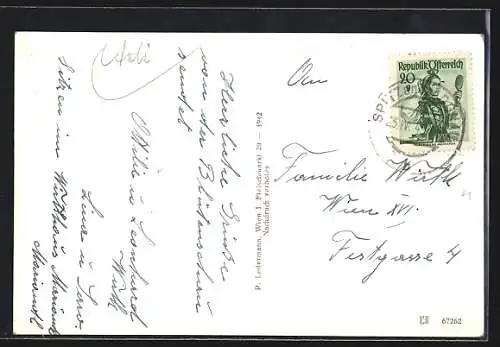 Adi
Herzliche Grüße
von der Blütenschau
sendet
Ottilie u Leonhard
Wirth
Sitzen im Wirtshaus Mariandl
Mariandl
P. Ledermann, Wien I Fleischmarkt 20 — 1942
Nachdruck verboten
Republik Österreich
20
SPITZ
An
Familie Wirth
Wien XVI.
Festgasse 4
67262